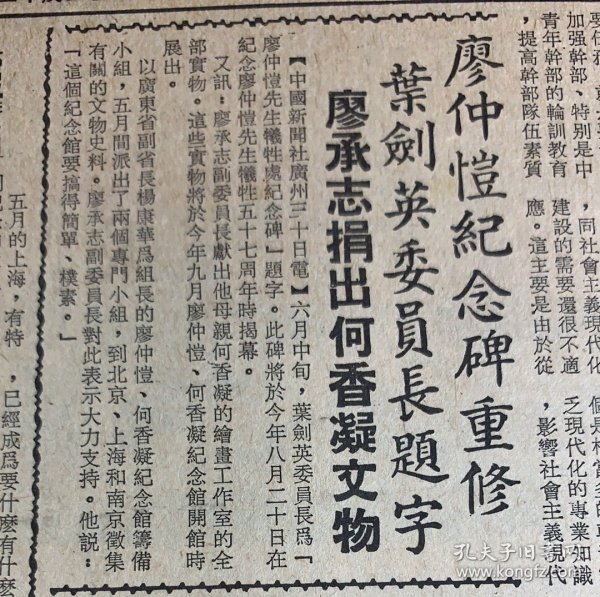 要任務，就
加强幹部、特别是中
青年幹部的輪訓教育
，提高幹部隊伍素質
，同社會主義現代化
建設的需要還很不適
應。這主要是由於從
乏現代化的專業知識
，影響社會主義現代
廖仲愷紀念碑重修
葉劍英委員長題字
廖承志捐出何香凝文物
【中國新聞社廣州三十日電】六月中旬，葉劍英委員長爲「
廖仲愷先生犧牲處紀念碑」題字。此碑將於今年八月二十日在
紀念廖仲愷先生犧牲五十七周年時揭幕。
又訊：廖承志副委員長獻出他母親何香凝的繪畫工作室的全
部實物。這些實物將於今年九月廖仲愷、何香凝紀念館開館時
展出。
以廣東省副省長楊康華爲組長的廖仲愷、何香凝紀念館籌備
小組，五月間派出了兩個專門小組，到北京、上海和南京徵集
有關的文物史料。廖承志副委員長對此表示大力支持。他説：
「這個紀念館要搞得簡單、樸素。」
五月的上海，有特
，已經成爲要什麽有什麽
孔夫子旧书网